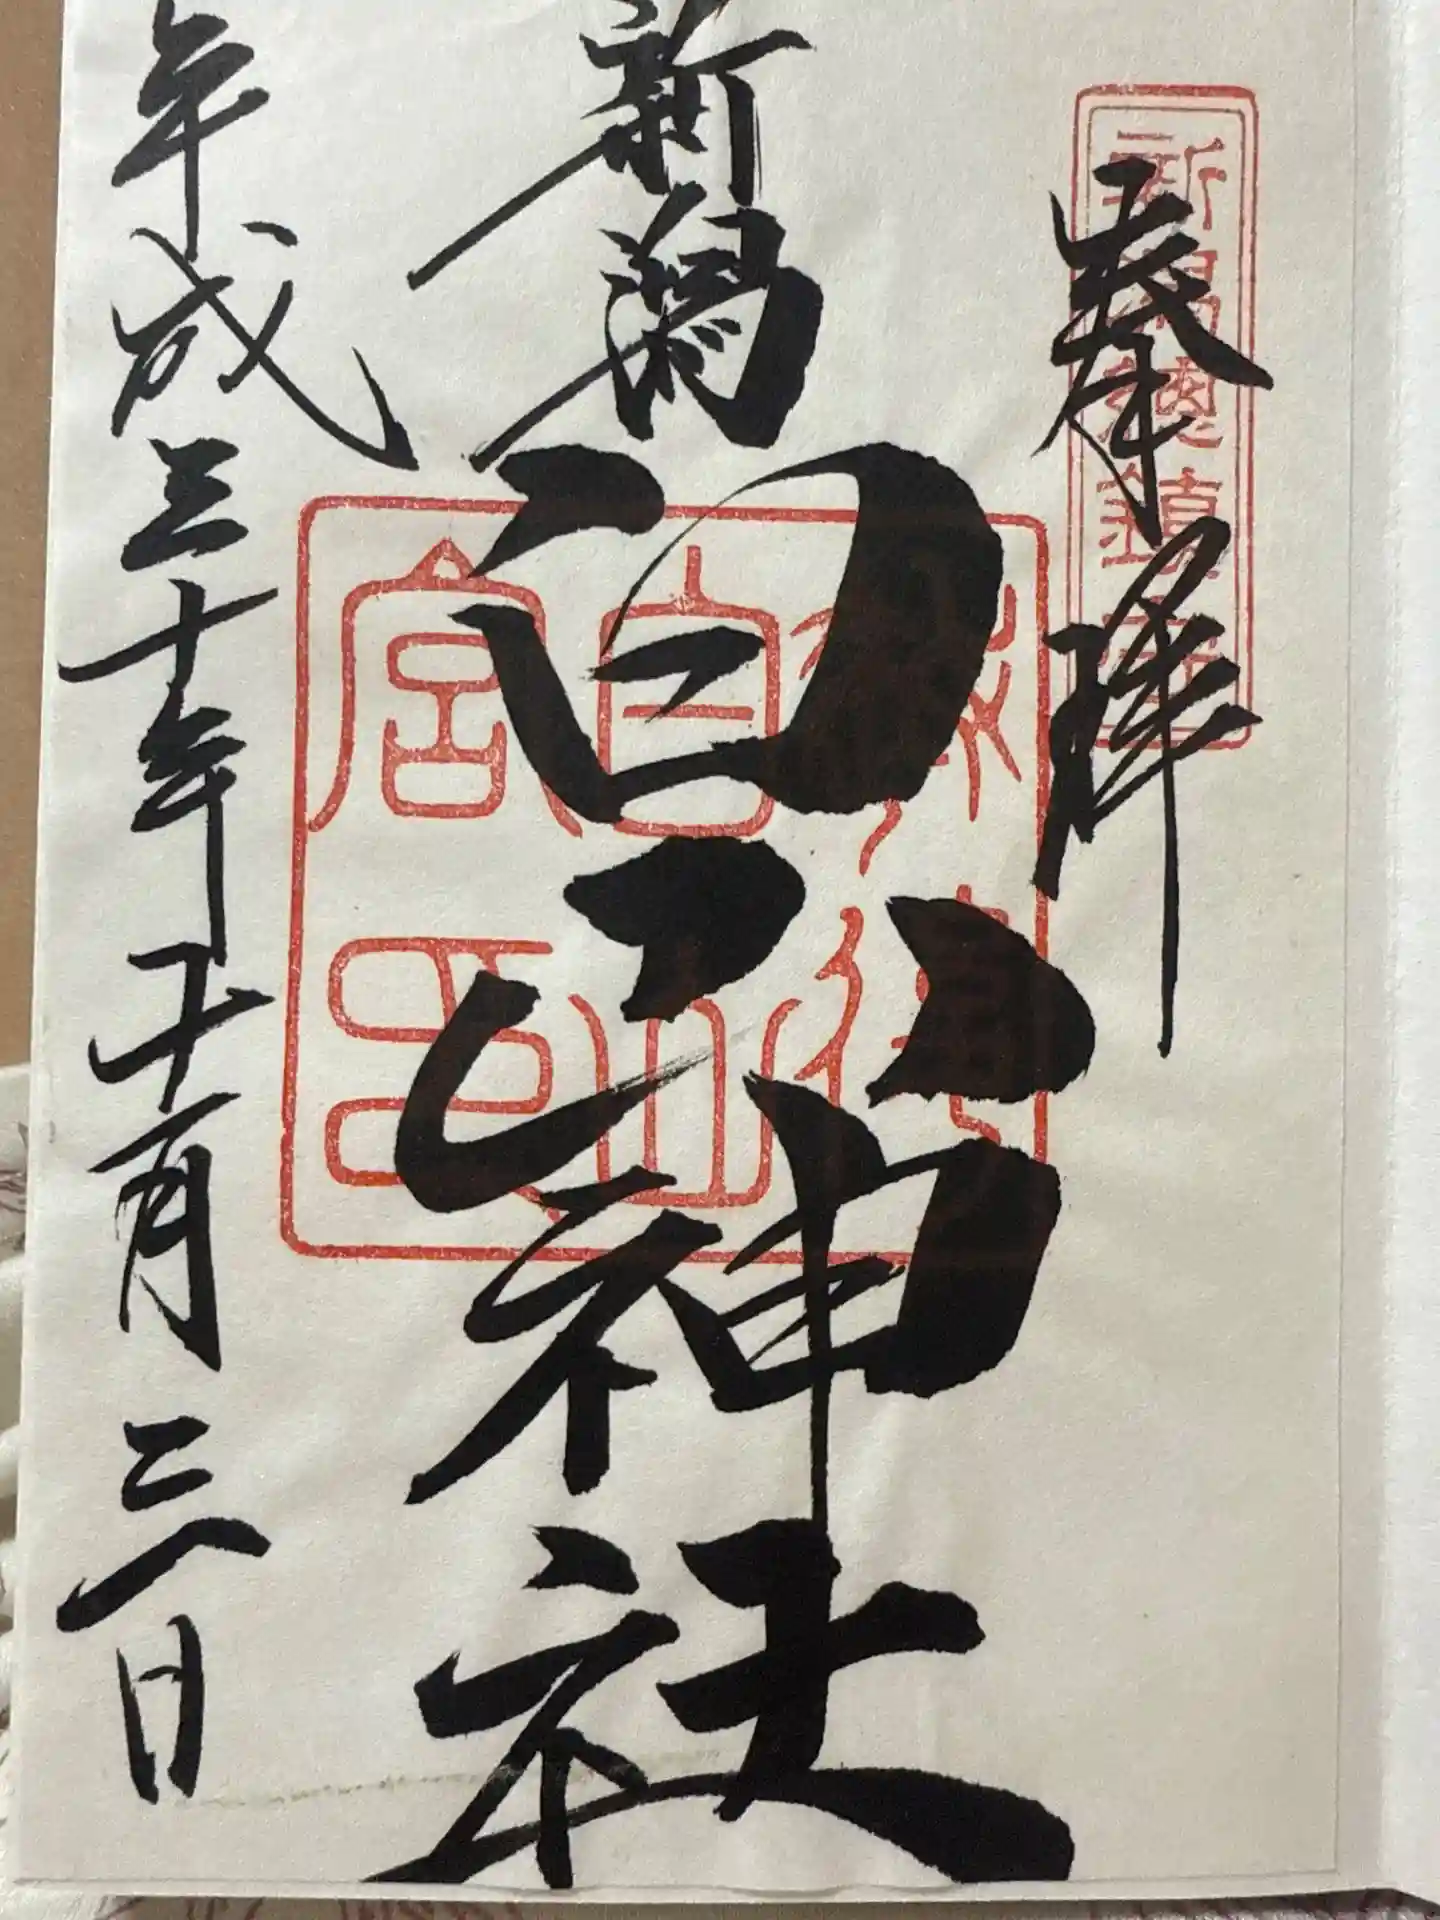 奉拝
新潟総鎮守
新潟
白山神社
白山
宮印
平成三十年十一月三日